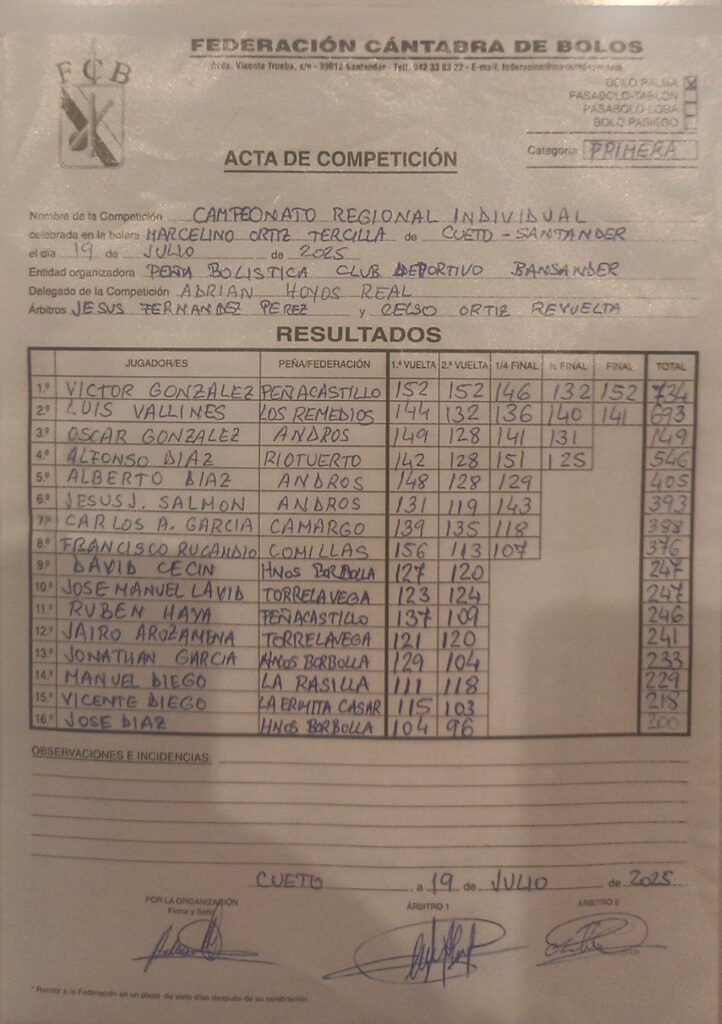 FCB
FEDERACIÓN CÁNTABRA DE BOLOS
Avda. Vicente Trueba, s/n - 39012 Santander - Telf. 942 33 63 22 - E-mail:
BOLO PALMA X
PASABOLO-TABLON
PASABOLO-LOSA
BOLO PASIEGO
ACTA DE COMPETICIÓN
Categoría PRIMERA
Nombre de la Competición CAMPEONATO REGIONAL INDIVIDUAL
celebrada en la bolera MARCELINO ORTIZ TERCILLA de CUETO - SANTANDER
el día 19 de JULIO de 2025
Entidad organizadora PEÑA BOLISTICA CLUB DEPORTIVO BANSANDER
Delegado de la Competición ADRIAN HOYOS REAL
Árbitros JESUS FERNANDEZ PEREZ y CELSO ORTIZ REVUELTA
RESULTADOS
JUGADOR/ES PEÑA/FEDERACIÓN 1.ª VUELTA 2.ª VUELTA 1/4 FINAL ½ FINAL FINAL TOTAL
1.º VICTOR GONZÁLEZ PEÑACASTILLO 152 152 146 132 152 734
2.º LUIS VALLINES LOS REMEDIOS 144 132 136 140 141 693
3.º OSCAR GONZALEZ ANDROS 149 128 141 131 149
4.º ALFONSO DIAZ RIOTUERTO 142 128 151 125 546
5.º ALBERTO DIAZ ANDROS 148 128 129 405
6.º JESUS J. SALMON ANDROS 131 119 143 393
7.º CARLOS A. GARCIA CAMARGO 139 135 118 388
8.º FRANCISCO RUCANDIO COMILLAS 156 113 107 376
9.º DAVID CECIN HNOS BORBOLLA 127 120 247
10.º JOSE MANUEL LAVID TORRELAVEGA 123 124 247
11.º RUBEN HAYA PEÑACASTILLO 137 109 246
12.º JAIRO AROZAMENA TORRELAVEGA 121 120 241
13.º JONATHAN GARCIA HNOS BORBOLLA 129 104 233
14.º MANUEL DIEGO LA RASILLA 111 118 229
15.º VICENTE DIEGO LA ERMITA CASAR 115 103 218
16.º JOSE DIAZ HNOS BORBOLLA 104 96 200
OBSERVACIONES E INCIDENCIAS:
CUETO, a 19 de JULIO de 2025
POR LA ORGANIZACIÓN ÁRBITRO 1 ÁRBITRO 2
Firma y Sello
* Remitir a la Federación en un plazo de siete días después de su celebración.